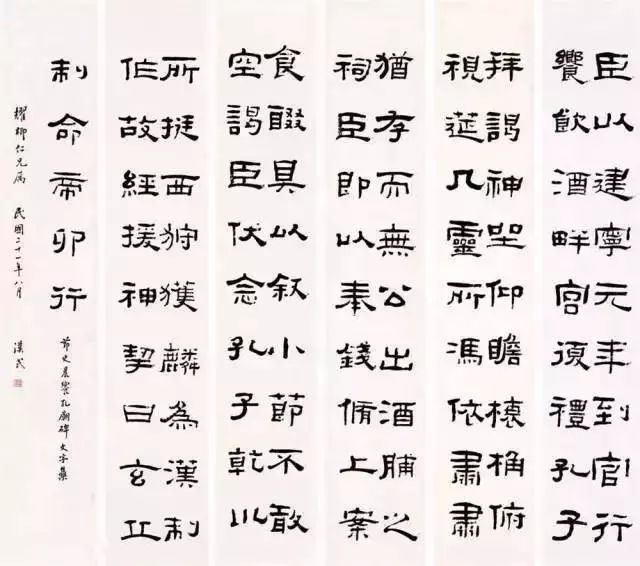 臣以建寧元年到官行
饗飲酒畔宮復禮孔子
拜謁神坐仰瞻榱桷俯
視筵几靈所馮依肅肅
猶存而無公出酒脯之
祠臣即以奉錢脩上案
食醊具以叙小節不敢
空謁臣伏念孔子乾巛
所挺西狩獲麟為漢制
作故經援神契曰玄丘
制命帝卯行
節史晨饗孔廟碑文字集
耀卿仁兄属 民國二十一年八月 漢民